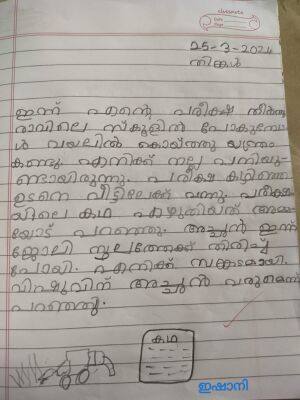 classmate
Date
Page
25-3-2024
തിങ്കൾ
ഇന്ന് എന്റെ പരീക്ഷ തീർന്നു
രാവിലെ സ്കൂളിൽ പോകുമ്പോ
ൾ വയലിൽ കൊയ്ത്തു യന്ത്രം
കണ്ടു. എനിക്ക് നല്ല പനിയു-
ണ്ടായിരുന്നു. പരീക്ഷ കഴിഞ്ഞ
ഉടനെ വീട്ടിലേക്ക് വന്നു. പരീക്ഷ
യിലെ കഥ എഴുതിയത് അമ്മ
യോട് പറഞ്ഞു. അച്ഛൻ ഇന്ന്
ജോലി സ്ഥലത്തേക്ക് തിരിച്ച്
പോയി. എനിക്ക് സങ്കടമായി.
വിഷുവിന് അച്ഛൻ വരുമെന്ന്
പറഞ്ഞു.
കഥ
ഇഷാനി